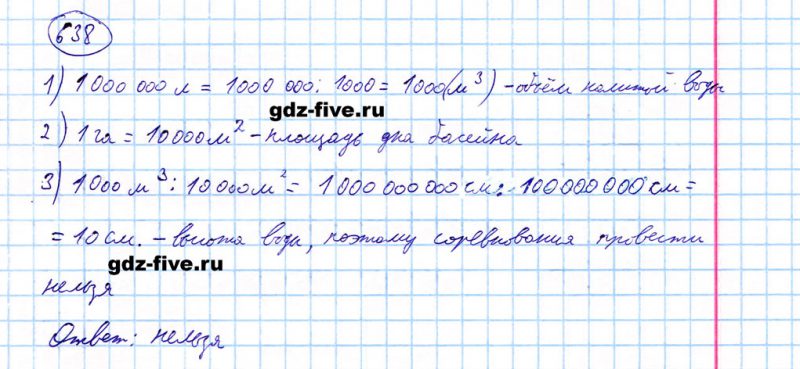 638
1) 1000 000 л = 1000 000 : 1000 = 1000(м³) - объём налитой воды
gdz-five.ru
2) 1 га = 10000м² - площадь дна басейна
3) 1000 м³ : 10000м² = 1 000 000 000 см : 100000000 см =
= 10 см. - высота воды, поэтому соревнования провести
gdz-five.ru
нельзя
Ответ: нельзя